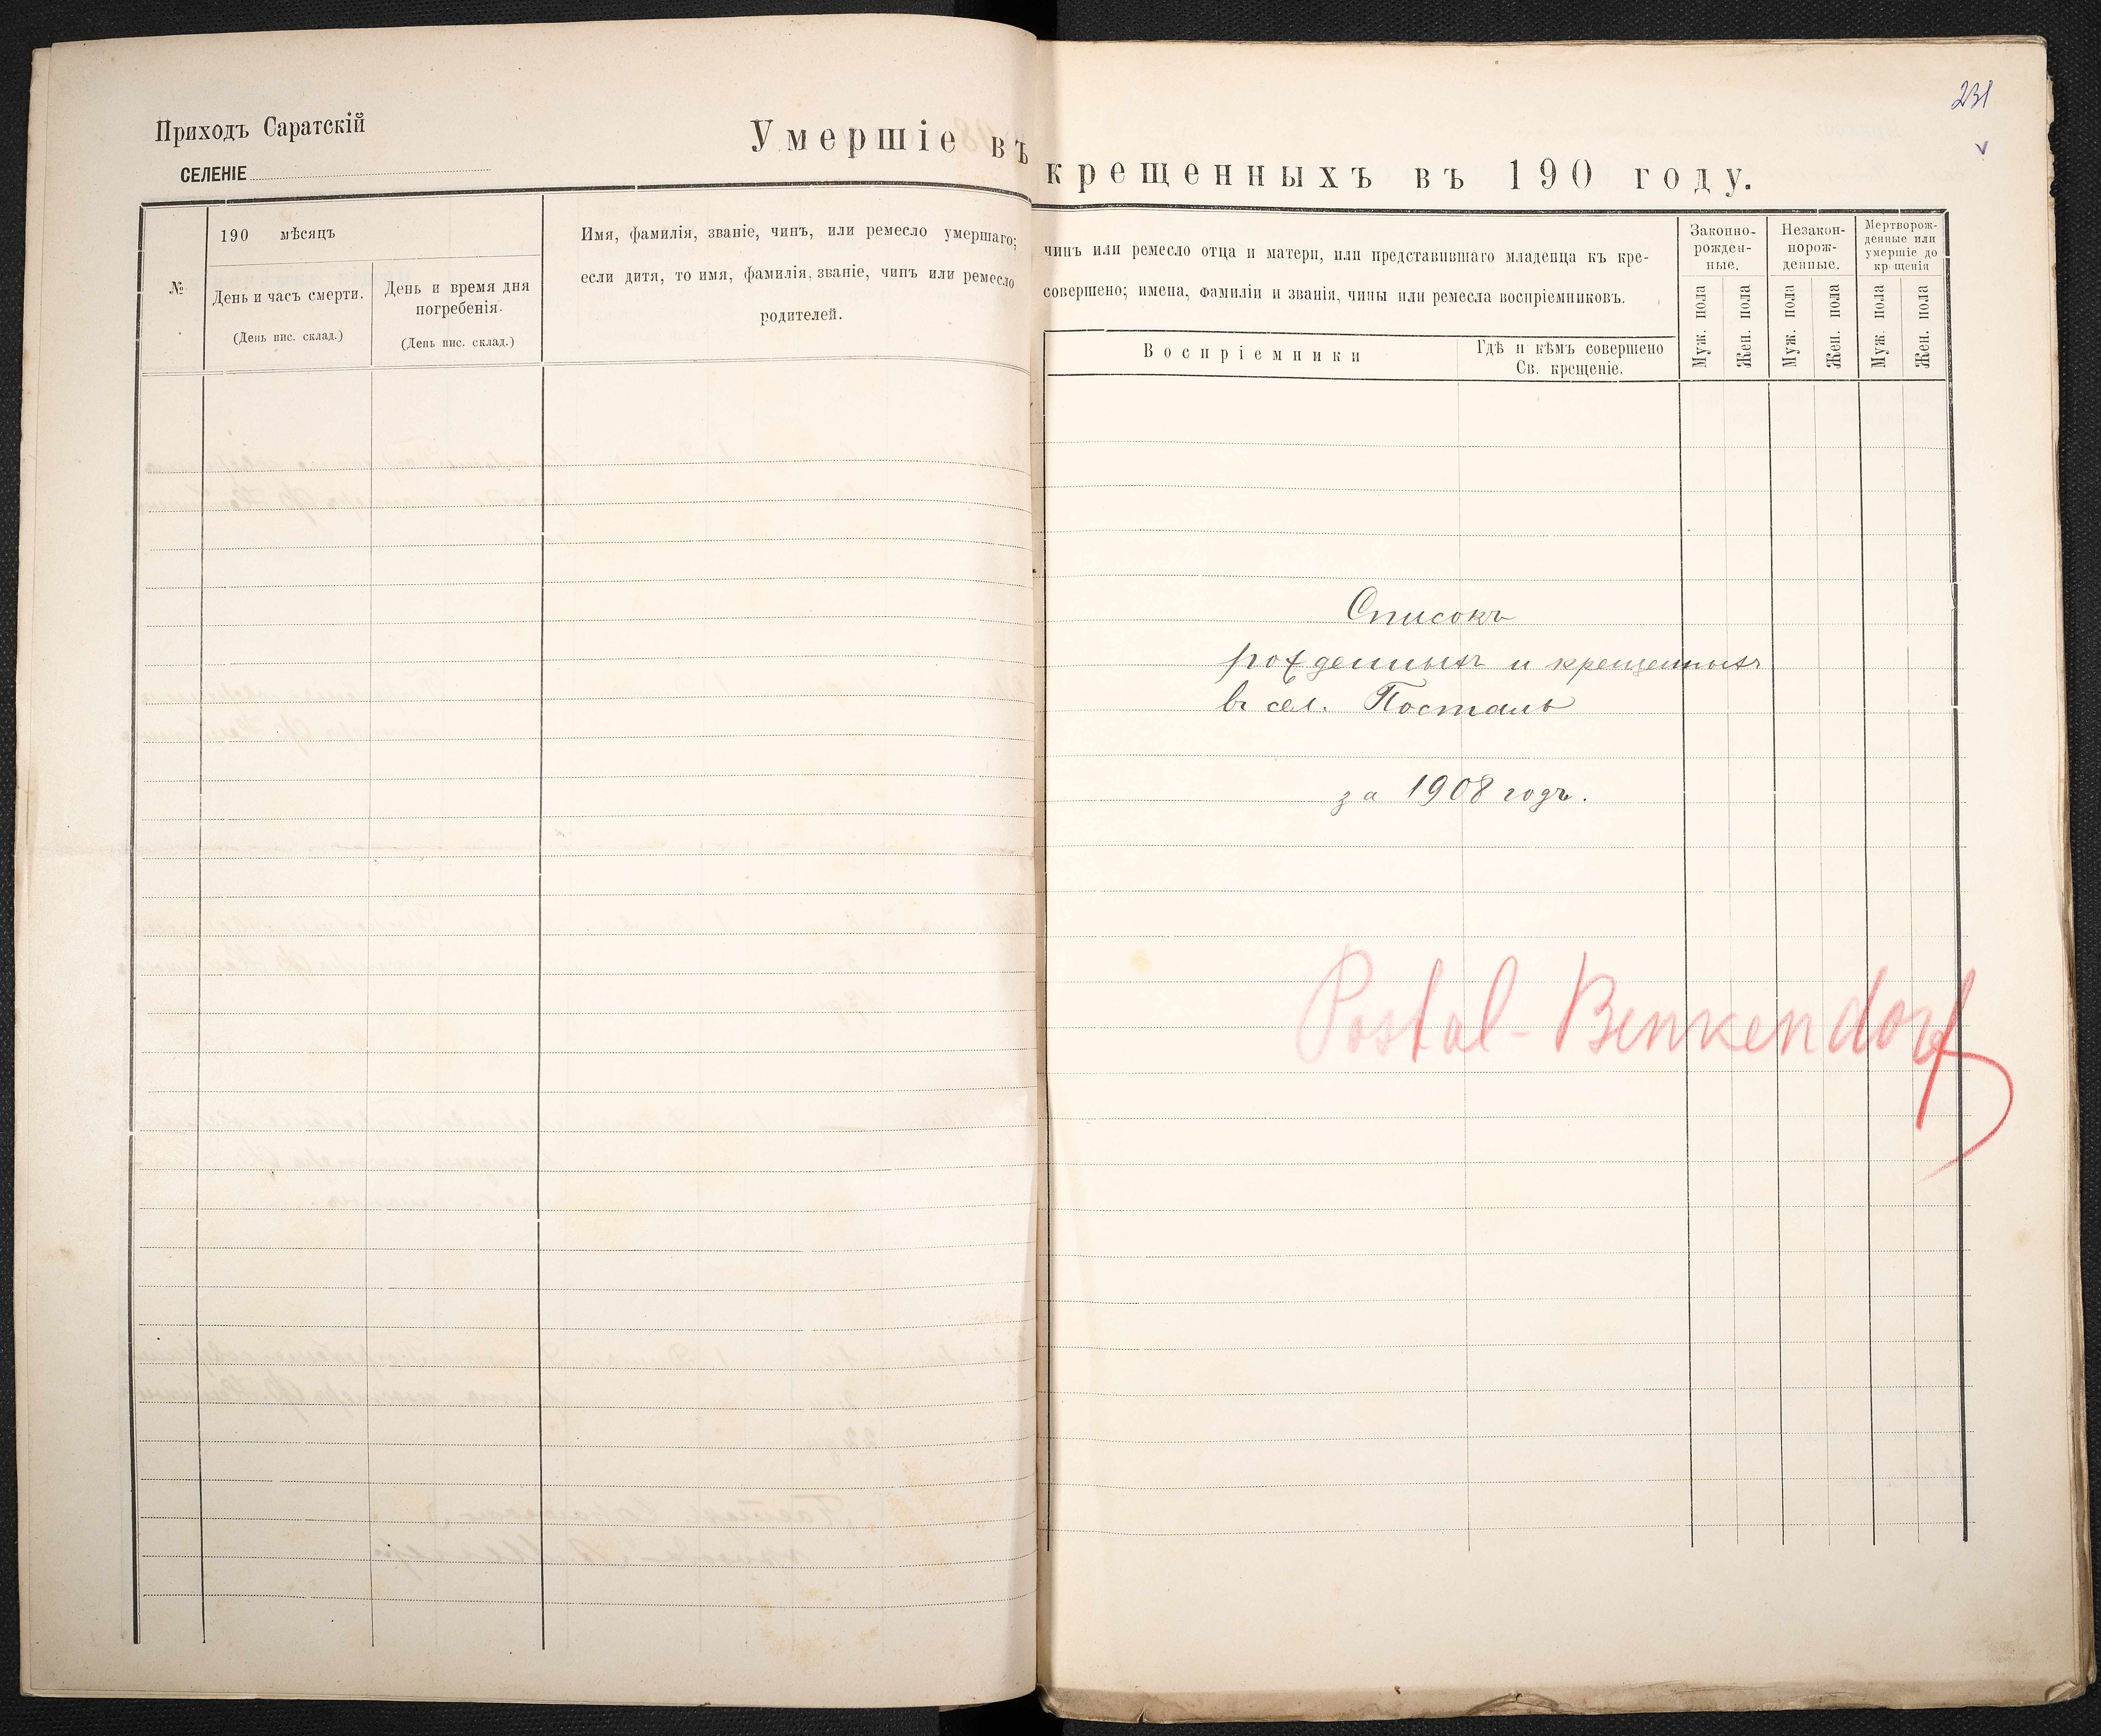 Приходъ Саратскій
СЕЛЕНІЕ
Умершіе въ
№
190 мѣсяцъ
День и часъ смерти.
(День пис. склад.)
День и время дня
погребенія.
(День пис. склад.)
Имя, фамилія, званіе, чинъ, или ремесло умершаго;
если дитя, то имя, фамилія, званіе, чинъ или ремесло
родителей.
231
крещенныхъ въ 190 году.
чинъ или ремесло отца и матери, или представившаго младенца къ кре-
совершено; имена, фамиліи и званія, чины или ремесла воспріемниковъ.
Воспріемники
Гдѣ и кѣмъ совершено
Св. крещеніе.
Законно-
рожден-
ные.
Незакон-
норож-
денные.
Мертворож-
денные или
умершіе до
крещенія
Муж. пола
Жен. пола
Муж. пола
Жен. пола
Муж. пола
Жен. пола
Списокъ
рожденныхъ и крещенныхъ
въ сел. Посталь
за 1908 годъ.
Postal-Benkendorf